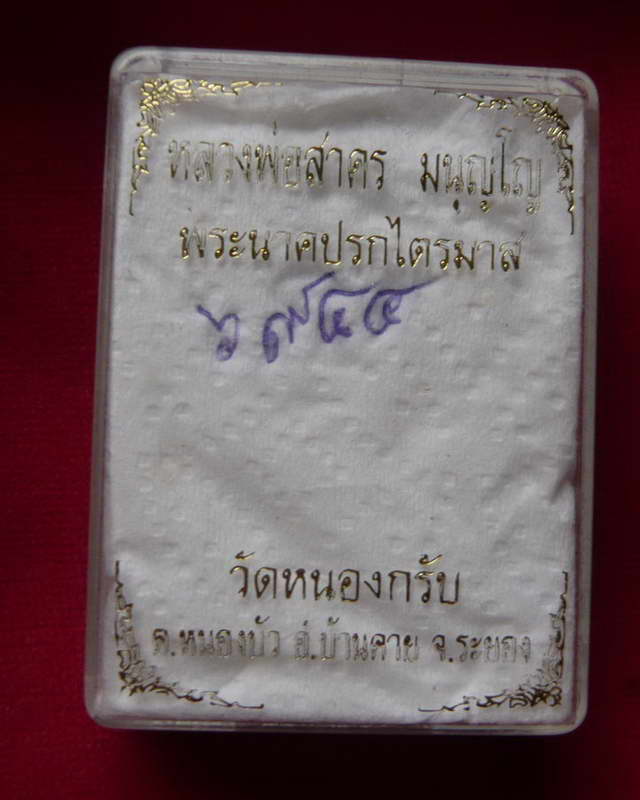 หลวงพ่อสาคร มนุญฺโญ
พระนาคปรกไตรมาส
๖๙๔๔
วัดหนองกรับ
ต.หนองบัว อ.บ้านค่าย จ.ระยอง